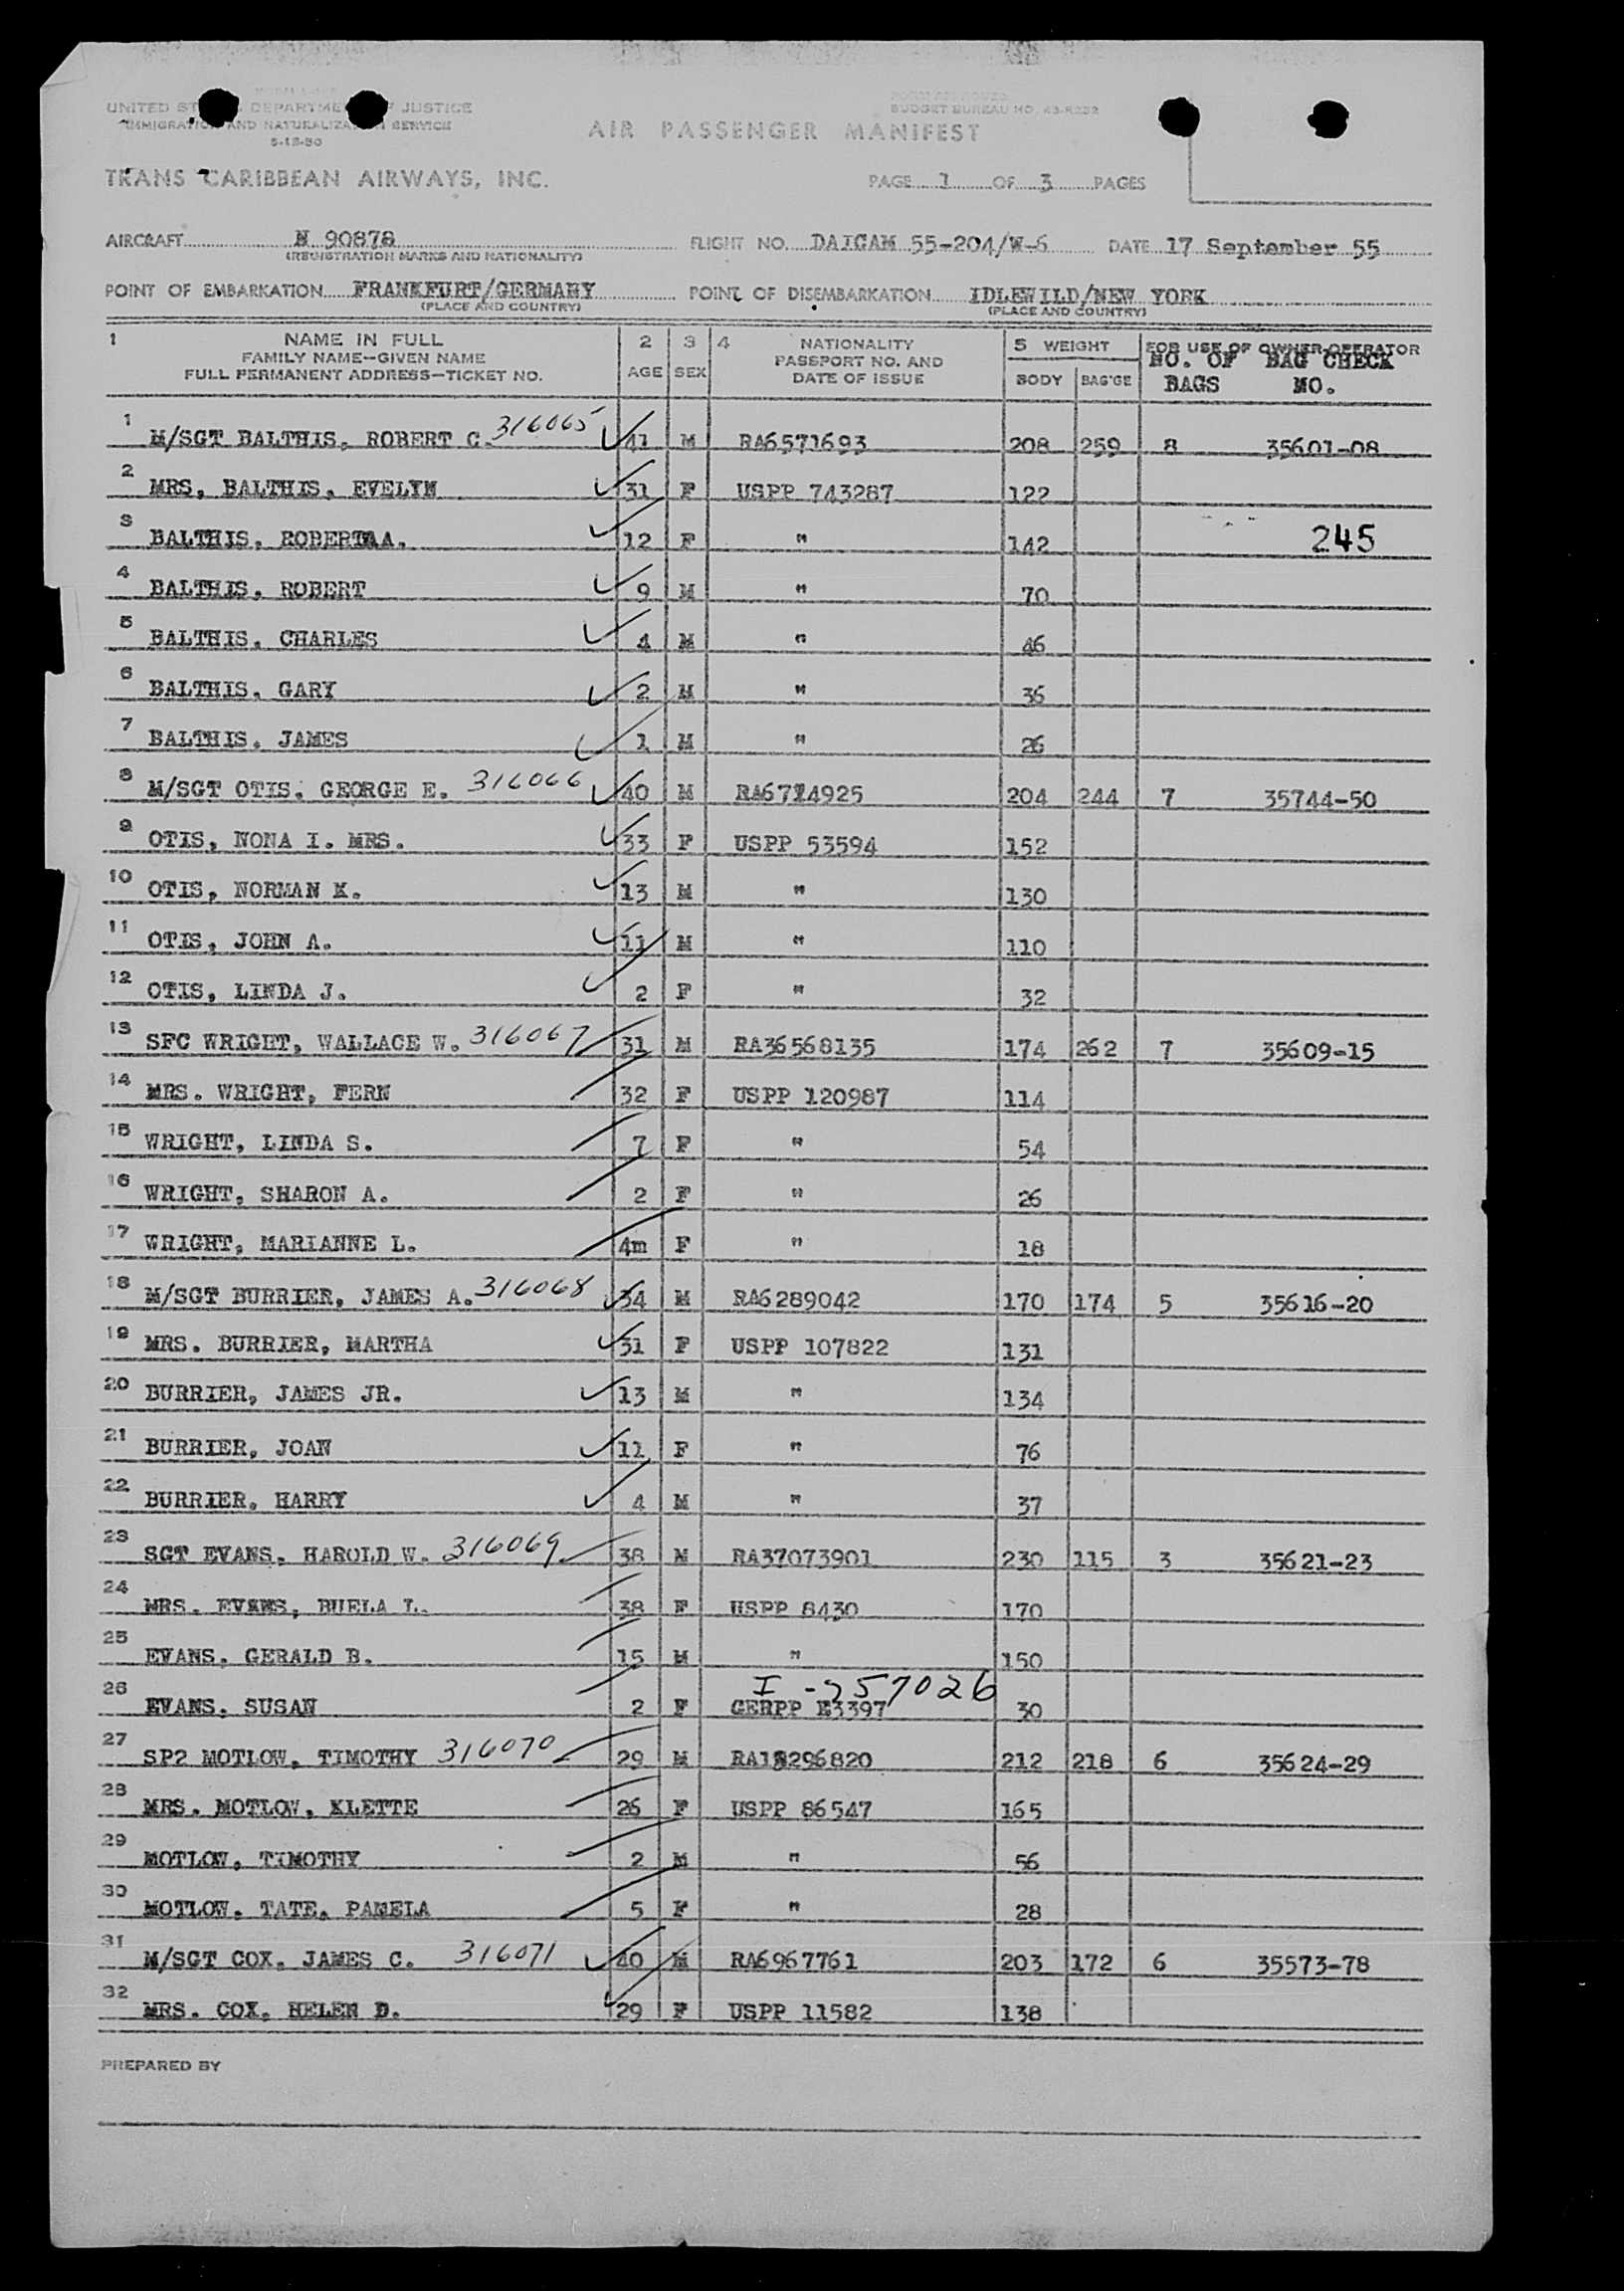 UNITED ST DEPARTME JUSTICE
IMMIGRATION AND NATURALIZATION SERVICE
5-15-50
BUDGET BUREAU NO. 43-R232
AIR PASSENGER MANIFEST
TRANS CARIBBEAN AIRWAYS, INC.
PAGE 1 OF 3 PAGES
AIRCRAFT N 90878 FLIGHT NO. DAICAM 55-204/W-6 DATE 17 September 55
(REGISTRATION MARKS AND NATIONALITY)
POINT OF EMBARKATION FRANKFURT/GERMANY POINT OF DISEMBARKATION IDLEWILD/NEW YORK
(PLACE AND COUNTRY) (PLACE AND COUNTRY)
1 NAME IN FULL 2 3 4 NATIONALITY 5 WEIGHT FOR USE OF OWNER-OPERATOR
FAMILY NAME—GIVEN NAME PASSPORT NO. AND NO. OF BAG CHECK
FULL PERMANENT ADDRESS—TICKET NO. AGE SEX DATE OF ISSUE BODY BAG'GE BAGS NO.
1 M/SGT BALTHIS, ROBERT C. 316065 41 M RA6571693 208 259 8 35601-08
2 MRS, BALTHIS, EVELYN 31 F USPP 743287 122
3 BALTHIS, ROBERTA A. 12 F " 142 245
4 BALTHIS, ROBERT 9 M " 70
5 BALTHIS, CHARLES 4 M " 46
6 BALTHIS, GARY 2 M " 36
7 BALTHIS, JAMES 1 M " 26
8 M/SGT OTIS, GEORGE E. 316066 40 M RA6714925 204 244 7 35744-50
9 OTIS, NONA I. MRS. 33 F USPP 53594 152
10 OTIS, NORMAN K. 13 M " 130
11 OTIS, JOHN A. 11 M " 110
12 OTIS, LINDA J. 2 F " 32
13 SFC WRIGHT, WALLACE W. 316067 31 M RA36568135 174 262 7 35609-15
14 MRS. WRIGHT, FERN 32 F USPP 120987 114
15 WRIGHT, LINDA S. 7 F " 54
16 WRIGHT, SHARON A. 2 F " 26
17 WRIGHT, MARIANNE L. 4m F " 18
18 M/SGT BURRIER, JAMES A. 316068 34 M RA6289042 170 174 5 35616-20
19 MRS. BURRIER, MARTHA 31 F USPP 107822 131
20 BURRIER, JAMES JR. 13 M " 134
21 BURRIER, JOAN 11 F " 76
22 BURRIER, HARRY 4 M " 37
23 SGT EVANS, HAROLD W. 316069 38 M RA37073901 230 115 3 35621-23
24 MRS. EVANS, BUELA L. 38 F USPP 8430 170
25 EVANS, GERALD B. 15 M " 150
I -257026
26 EVANS, SUSAN 2 F GERPP E3397 30
27 SP2 MOTLOW, TIMOTHY 316070 29 M RA18296820 212 218 6 35624-29
28 MRS. MOTLOW, KLETTE 26 F USPP 86547 165
29 MOTLOW, TIMOTHY 2 M " 56
30 MOTLOW, TATE, PAMELA 5 F " 28
31 M/SGT COX, JAMES C. 316071 40 M RA6967761 203 172 6 35573-78
32 MRS. COX, HELEN D. 29 F USPP 11582 138
PREPARED BY